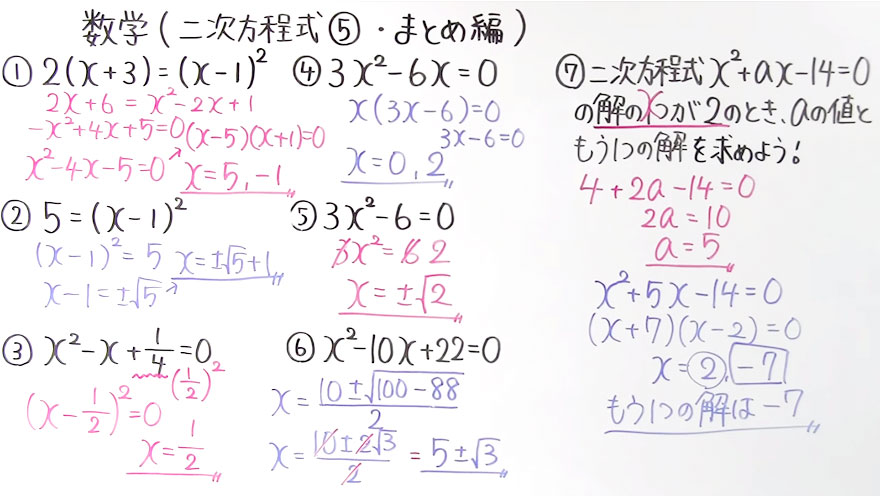 数学(二次方程式⑤・まとめ編)
① 2(x+3)=(x-1)²
2x+6=x²-2x+1
-x²+4x+5=0 (x-5)(x+1)=0
x²-4x-5=0 ↗ x=5,-1
② 5=(x-1)²
(x-1)²=5 x=±√5+1
x-1=±√5 ↗
③ x²-x+1/4=0
(1/2)²
(x-1/2)²=0
x=1/2
④ 3x²-6x=0
x(3x-6)=0
3x-6=0
x=0,2
⑤ 3x²-6=0
3x²=6 2
x=±√2
⑥ x²-10x+22=0
x=(10±√(100-88))/2
x=(10±2√3)/2=5±√3
⑦ 二次方程式x²+ax-14=0
の解の1つが2のとき、aの値と
もう1つの解を求めよう!
4+2a-14=0
2a=10
a=5
x²+5x-14=0
(x+7)(x-2)=0
x=2,-7
もう1つの解は-7